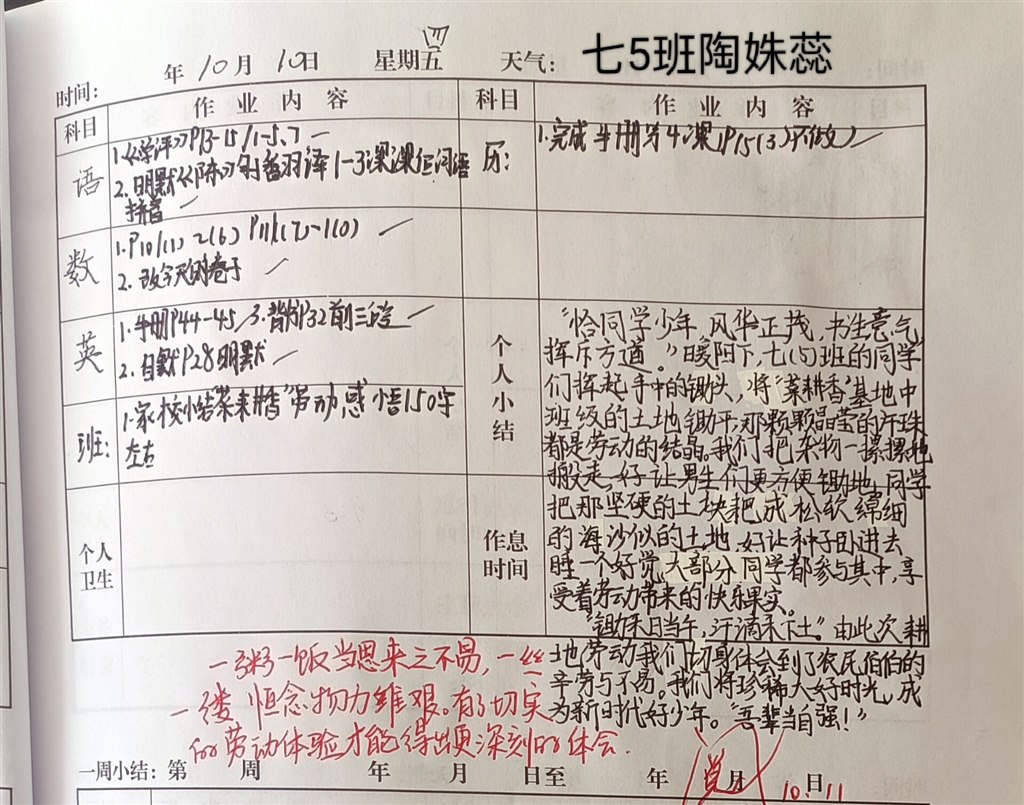 七5班陶姝蕊
时间： 年 10月 10日 星期五 四 天气：
科目 作业内容 科目 作业内容
语
1.《学评》P13-15/1-5、7
2.明默《陈》
拼音
历：
1.完成手册第4课(P15(3)不做)
数
1.P10/(1) 2(6) P11/(7)-1(0)
2.改今天的卷子
英
1.手册P44-45 3.背P32前三段
2.自默P28明默
班：
1.家校小结"菜耕香"劳动感悟150字
左右
个人小结
个人卫生
作息时间
"恰同学少年，风华正茂，书生意气
挥斥方遒。"暖阳下，七(5)班的同学
们挥起手中的锄头，将"菜耕香"基地中
班级的土地锄平，那颗颗晶莹的汗珠
都是劳动的结晶。我们把杂物一摞摞地
搬走，好让男生们更方便锄地，同学
把那坚硬的土块耙成松软绵细
的海沙似的土地，好让种子卧进去
睡一个好觉。大部分同学都参与其中，享
受着劳动带来的快乐果实。
"锄禾日当午，汗滴禾下土。"由此次耕
地劳动我们切身体会到了农民伯伯的
辛劳与不易。我们将珍稀大好时光，成
为新时代好少年。"吾辈当自强！"
一粥一饭当思来之不易，一丝
一缕恒念物力维艰。有了切实
的劳动体验才能得出更深刻的体会.
一周小结：第 周 年 月 日至 年 月 日
10.11